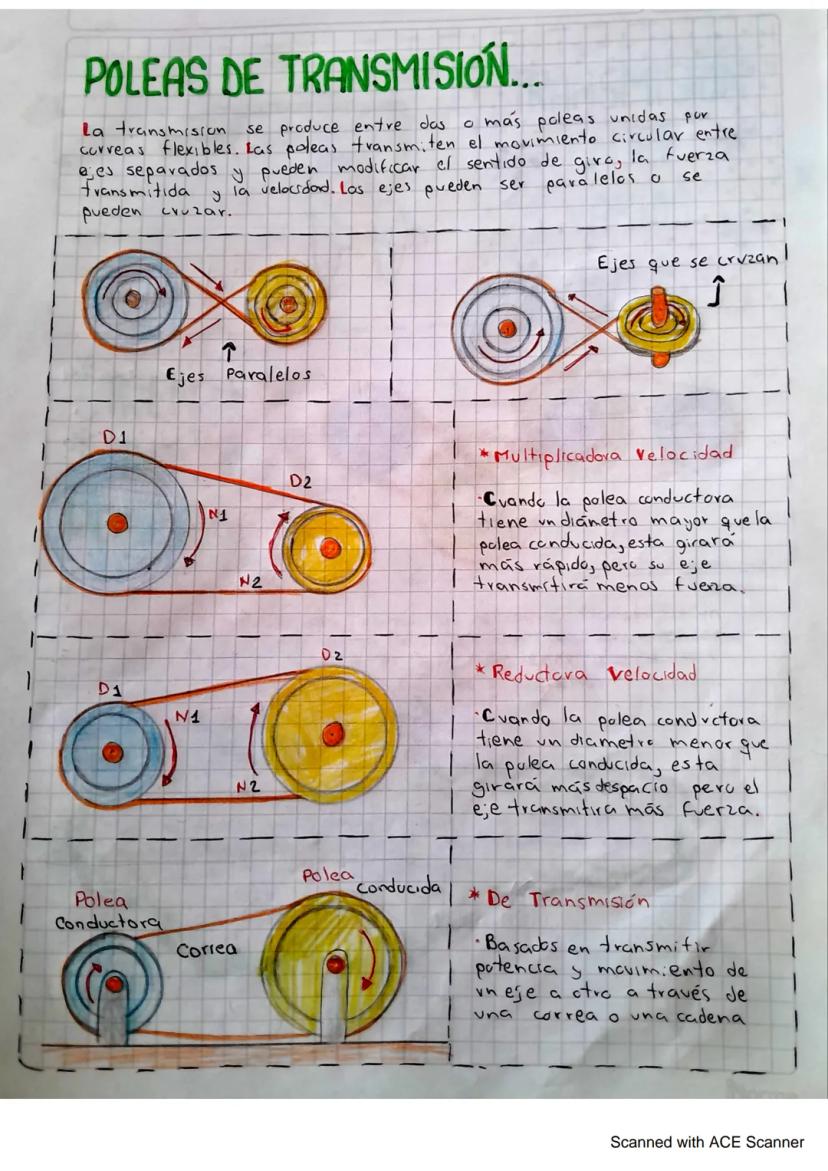 POLEAS DE TRANSMISIÓN...
La transmision se produce entre dos o más poleas unidas por
correas flexibles. Las poleas transmiten el movimiento circular entre
ejes separados y pueden modificar el sentido de giro, la fuerza
transmitida y la velocidad. Los ejes pueden ser paralelos o se
pueden cruzar.
Ejes Paralelos
Ejes que se cruzan
D1
D2
N1
N2
* Multiplicadora Velocidad
·Cuando la polea conductora
tiene un diámetro mayor que la
polea conducida, esta girará
más rápido, pero su eje
transmitirá menos fuerza.
D1
D2
N1
N2
* Reductora Velocidad
·Cuando la polea conductora
tiene un diametro menor que
la polea conducida, esta
girará más despacio pero el
eje transmitira más fuerza.
Polea
Conductora
Correa
Polea
Conducida
* De Transmisión
·Basados en transmitir
potencia y movimiento de
un eje a otro a través de
una correa o una cadena
Scanned with ACE Scanner